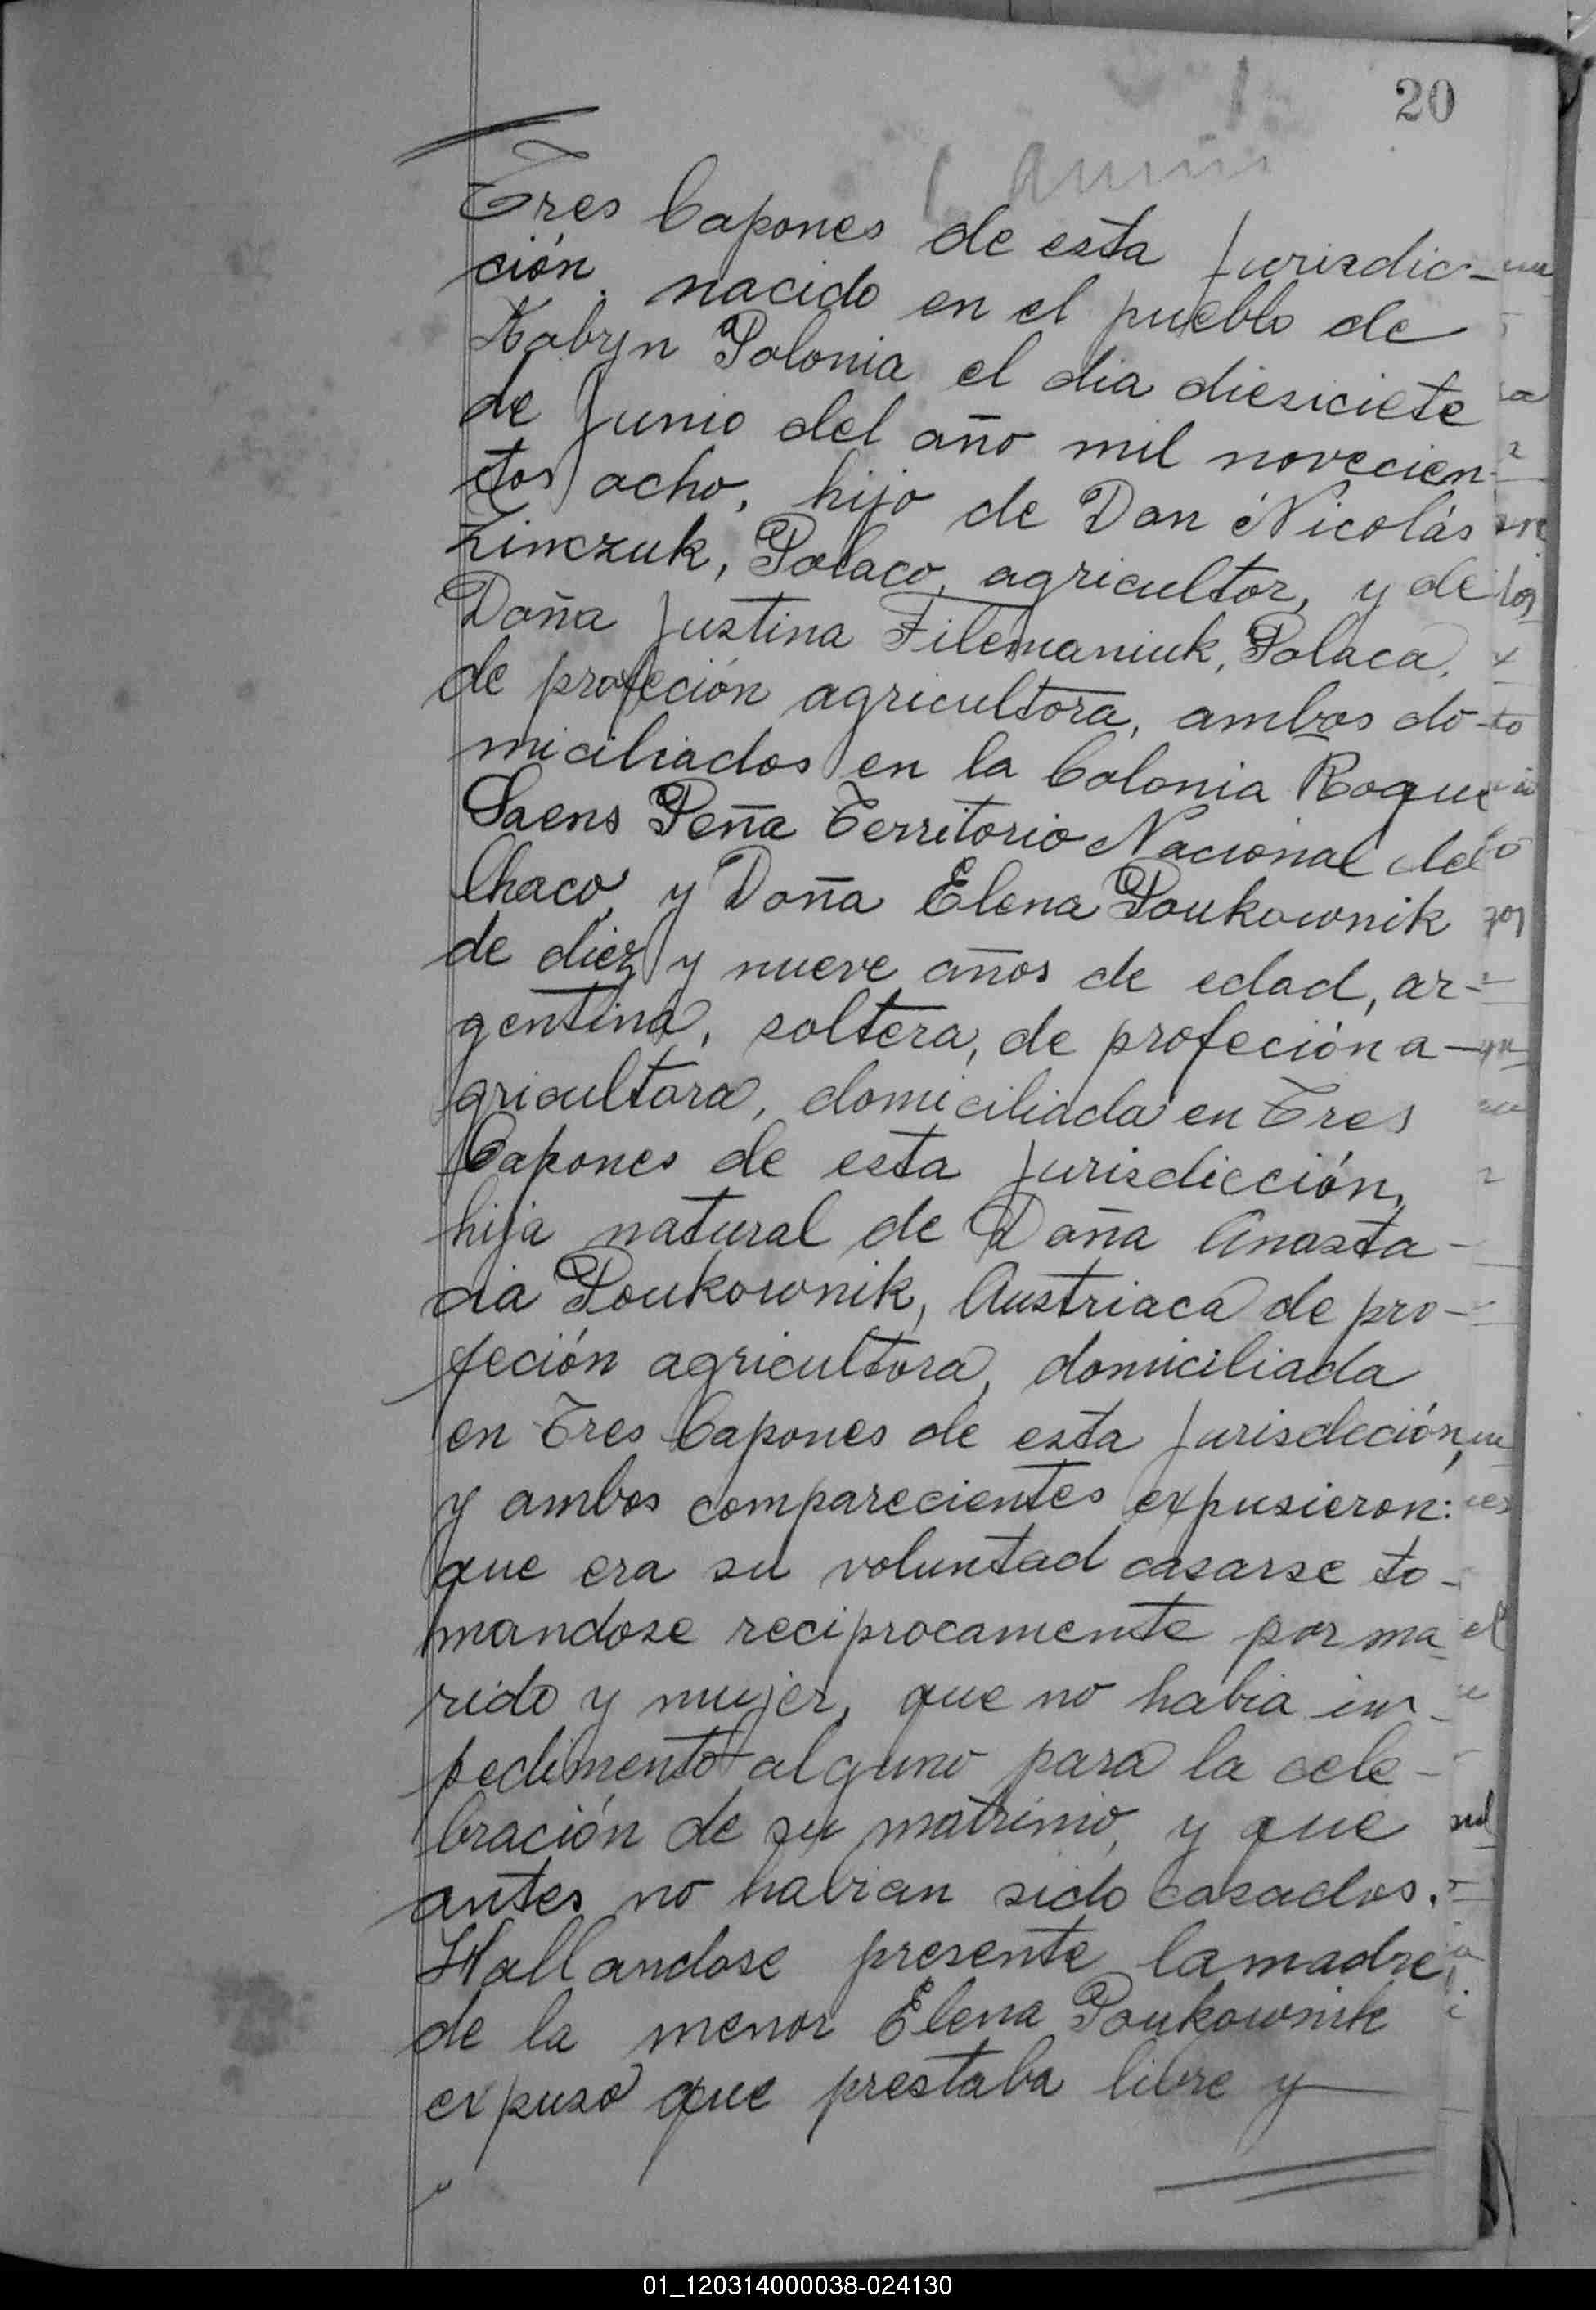 20
Tres Capones de esta Jurisdic-
ción. nacido en el pueblo de
Kabryn Polonia el dia diesiciete
de Junio del año mil novecien-
tos ocho, hijo de Don Nicolás
Zinczuk, Polaco, agricultor, y de
Doña Justina Filemaniuk, Polaca,
de profeción agricultora, ambos do-
miciliados en la Colonia Roque
Saens Peña Territorio Nacional del
Chaco, y Doña Elena Poukownik
de diez y nueve años de edad, ar-
gentina, soltera, de profeción a-
gricultora, domiciliada en Tres
Capones de esta Jurisdicción,
hija natural de Doña Anasta-
cia Poukownik, Austriaca de pro-
feción agricultora, domiciliada
en Tres Capones de esta Jurisdeción,
y ambos comparecientes expusieron:
que era su voluntad casarse to-
mandose reciprocamente por ma-
rido y mujer, que no habia im-
pedimento alguno para la cele-
bración de su matrinio, y que
antes no habian sido casados.
Hallandose presente la madre
de la menor Elena Poukownik
expuso que prestaba libre y
01_120314000038-024130